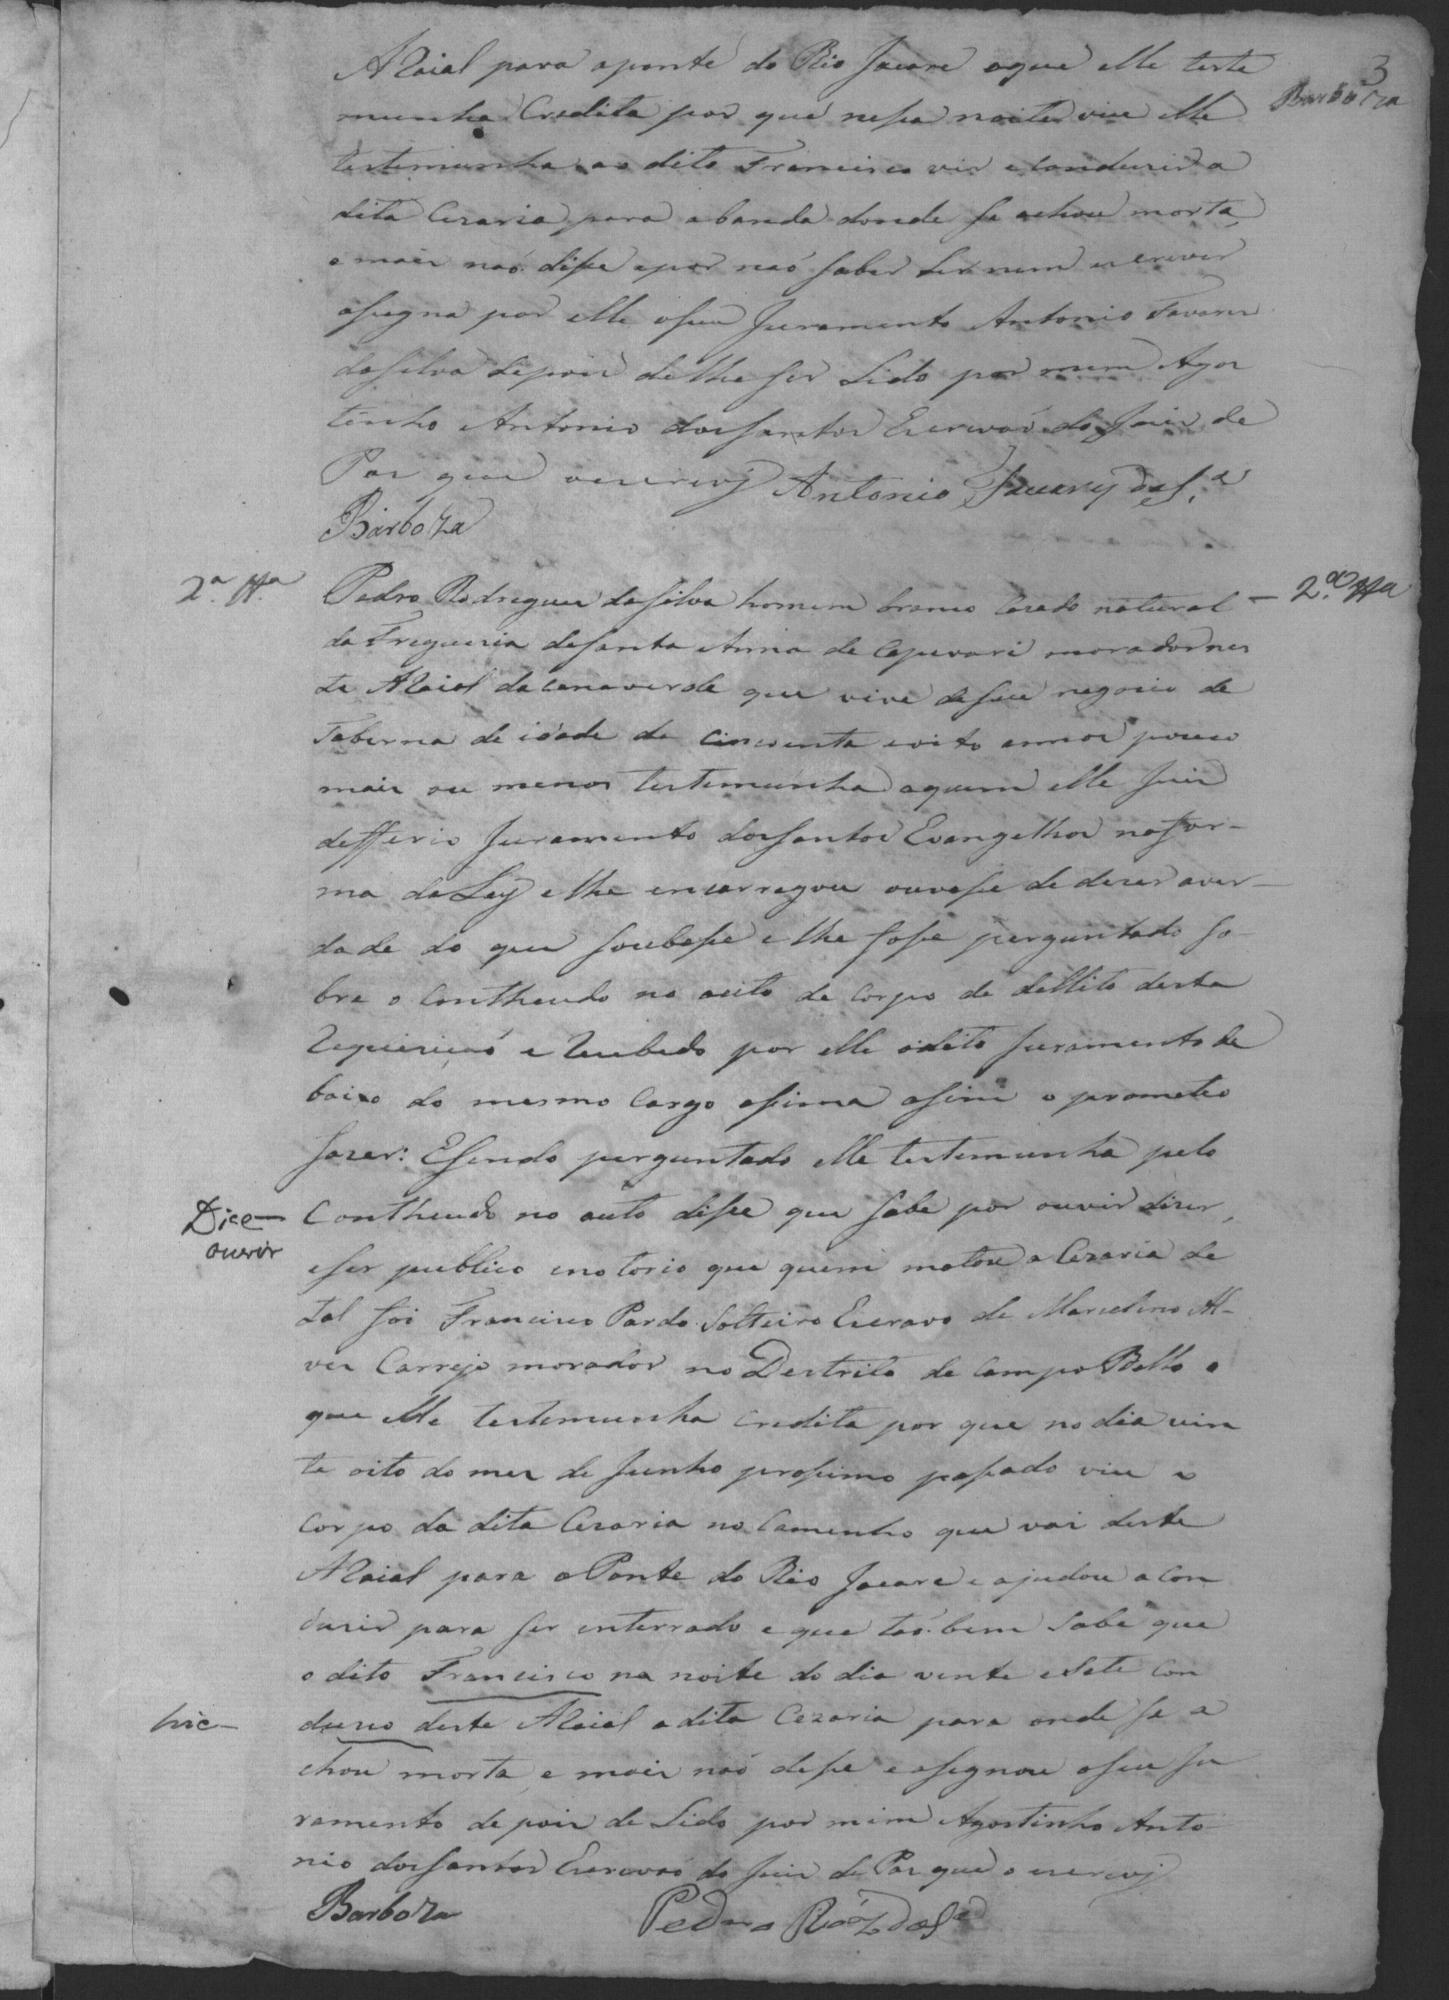 3
Barboza
ARaial para aponte do Rio Jacare oque elle teste
munha Credita por que nessa noite viu elle
testemunha ao dito Francisco vir e Condusir a
dita Cezaria para abanda donde se achou morta,
e mais naó disse epor naó saber Ler nem escrever
assigna por elle oseu Juramento Antonio Tavares
dasilva depois delhe ser Lido por mim Agos
tinho Antonio dosSantos Escrivaó do Juis de
Pas que oescrevj Antonio Tavares daS.ª
Barboza
2.ª tt.ª
Pedro Rodrigues dasilva homem branco Casado natural
— 2.ª tta
da Freguesia desanta Anna de Capivari morador nes
te ARaial da Canaverde que vive deseu negocio de
Taberna de idade de Cincoenta eoito annos pouco
mais ou menos testemunha aquem elle Juis
defferio Juramento dosSantos Evangelhos nafor-
ma da Ley elhe encarregou ouvesse de dizer aver-
dade do que soubesse e lhe fosse perguntado so-
bre o Contheudo no auto de Corpo de dellito desta
Requisiçaó e Recebido por elle odito Juramento de
baixo do mesmo Cargo assima assim o prometeo
faser: Esendo perguntado elle testemunha pelo
Dice
ouvir
Contheudo no auto disse que sabe por ouvir diser,
eser publico enotorio que quem matou a Cezaria de
tal foi Francisco Pardo Solteiro Escravo de Marcelino Al-
ves Carrejo morador no Destrito de Campo Bello o
que elle testemunha Credita por que no dia vin
te oito do mes de Junho prossimo passado viu o
Corpo da dita Cesaria no Camenho que vai deste
ARaial para a Ponte do Rio Jacare e ajudou a Con
dusir para ser enterrado e que taó bem Sabe que
o dito Francisco na noite do dia vente esete Con
hic—
dusio deste ARaial adita Cezaria para onde se a
chou morta e mais naó desse e assignou oseu Ju
ramento depois de Lido por mim Agostinho Anto
nio dosSantos Escrivaó do Juis de Pas que o escrevj
Barboza
Pedro Roiz daSª